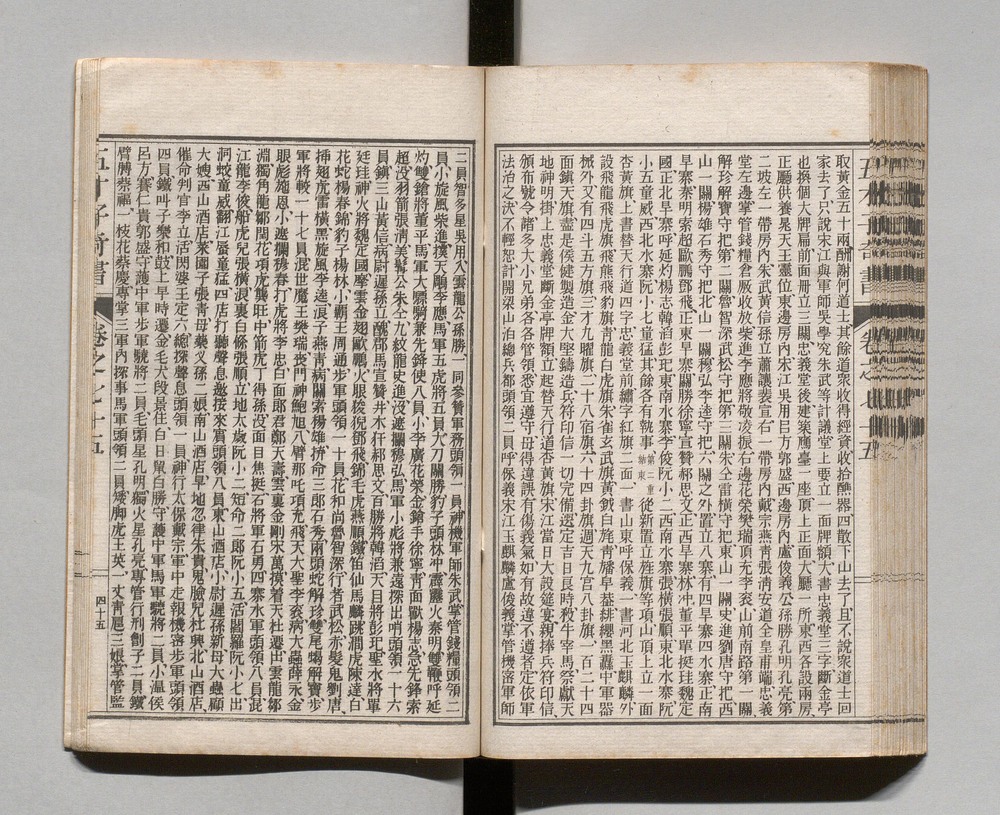 取黃金五十兩酬謝何道士其餘道衆收得經資收拾醮器四散下山去了且不說衆道士回
家去了只說宋江與軍師吳學究朱武等計議堂上要立一面牌額大書忠義堂三字斷金亭
也換個大牌扁前面冊立三關忠義堂後建築鴈臺一座頂上正面大廳一所東西各設兩房
正廳供養晁天王靈位東邊房內宋江吳用呂方郭盛西邊房內盧俊義公孫勝孔明孔亮第
二坡左一帶房內朱武黃信孫立蕭讓裴宣右一帶房內戴宗燕青張清安道全皇甫端忠義
堂左邊掌管錢糧倉厫收放柴進李應蔣敬凌振右邊花榮樊瑞項充李袞山前南路第一關
解珍解寶守把第二關魯智深武松守把第三關朱仝雷橫守把東山一關史進劉唐守把西
山一關楊雄石秀守把北山一關穆弘李逵守把六關之外置立八寨有四旱寨四水寨正南
旱寨秦明索超歐鵬鄧飛正東旱寨關勝徐寧宣贊郝思文正西旱寨林冲董平單挺珪魏定
國正北旱寨呼延灼楊志韓滔彭玘東南水寨李俊阮小二西南水寨張橫張順東北水寨阮
小五童威西北水寨阮小七童猛其餘各有執事從新置立旌旗等項山頂上立一面
第二重結束
杏黃旗上書替天行道四字忠義堂前繡字紅旗二面一書山東呼保義一書河北玉麒麟外
設飛龍飛虎旗飛熊飛豹旗青龍白虎旗朱雀玄武旗黃鉞白旄青旛皁蓋緋纓黑纛中軍器
械外又有四斗五方旗三才九曜旗二十八宿旗六十四卦旗週天九宮八卦旗一百二十四
面鎮天旗盡是侯健製造金大堅鑄造兵符印信一切完備選定吉日良時殺牛宰馬祭獻天
地神明掛上忠義堂斷金亭牌額立起替天行道杏黃旗宋江當日大設筵宴親捧兵符印信
頒布號令諸多大小兄弟各各管領悉宜遵守毋得違誤有傷義氣如有故違不遵者定依軍
法治之決不輕恕計開梁山泊總兵都頭領二員呼保義宋江玉麒麟盧俊義掌管機密軍師
二員智多星吳用入雲龍公孫勝一同參贊軍務頭領一員神機軍師朱武掌管錢糧頭領二
員小旋風柴進撲天鵰李應馬軍五虎將五員大刀關勝豹子頭林冲霹靂火秦明雙鞭呼延
灼雙鎗將董平馬軍大驃騎兼先鋒使八員小李廣花榮金鎗手徐寧青面獸楊志急先鋒索
超沒羽箭張清美髯公朱仝九紋龍史進沒遮攔穆弘馬軍小彪將兼遠探出哨頭領一十六
員鎮三山黃信病尉遲孫立醜郡馬宣贊井木犴郝思文百勝將韓滔天目將彭玘聖水將單
廷珪神火將魏定國摩雲金翅歐鵬火眼狻猊鄧飛錦毛虎燕順鐵笛仙馬麟跳澗虎陳達白
花蛇楊春錦豹子楊林小霸王周通步軍頭領一十員花和尚魯智深行者武松赤髮鬼劉唐
揷翅虎雷橫黑旋風李逵浪子燕青病關索楊雄拚命三郎石秀兩頭蛇解珍雙尾蝎解寶步
軍將校一十七員混世魔王樊瑞喪門神鮑旭八臂那吒項充飛天大聖李袞病大蟲薛永金
眼彪施恩小遮攔穆春打虎將李忠白面郎君鄭天壽雲裏金剛宋萬摸着天杜遷出雲龍鄒
淵獨角龍鄒閏花項虎龔旺中箭虎丁得孫沒面目焦挺石將軍石勇四寨水軍頭領八員混
江龍李俊船火兒張橫浪裏白條張順立地太歲阮小二短命二郎阮小五活閻羅阮小七出
洞蛟童威翻江蜃童猛四店打聽聲息邀接來賓頭領八員東山酒店小尉遲孫新母大蟲顧
大嫂西山酒店菜園子張青母藥义孫二娘南山酒店旱地忽律朱貴鬼臉兒杜興北山酒店
催命判官李立活閃婆王定六總探聲息頭領一員神行太保戴宗軍中走報機密步軍頭領
四員鐵叫子樂和鼓上早時遷金毛犬段景住白日鼠白勝守護中軍馬軍驍將二員小溫侯
呂方賽仁貴郭盛守護中軍步軍驍將二員毛頭星孔明獨火星孔亮專管行刑劊子二員鐵
臂膊蔡福一枝花蔡慶專掌三軍內探事馬軍頭領二員矮脚虎王英一丈青扈三娘掌管監
四十五